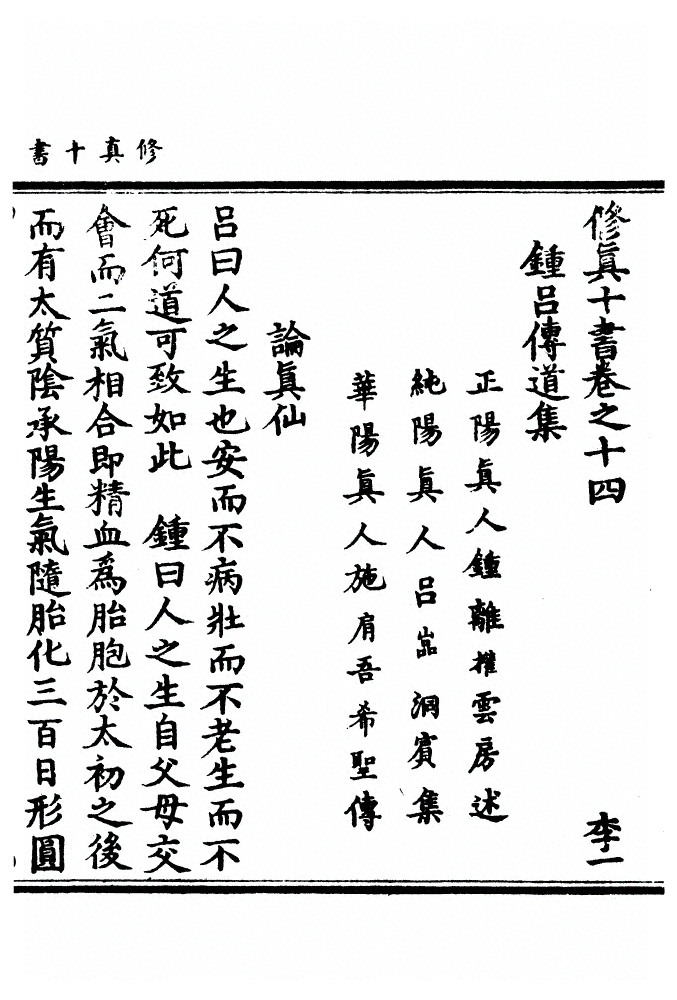 修真十書
修眞十書卷之十四 李一
鍾呂傳道集
正陽眞人鍾離權雲房述
純陽眞人呂嵓洞賓集
華陽眞人施肩吾希聖傳
論眞仙
呂曰人之生也安而不病壯而不老生而不
死何道可致如此 鍾曰人之生自父母交
會而二氣相合即精血為胎胞於太初之後
而有太質陰承陽生氣隨胎化三百日形圓